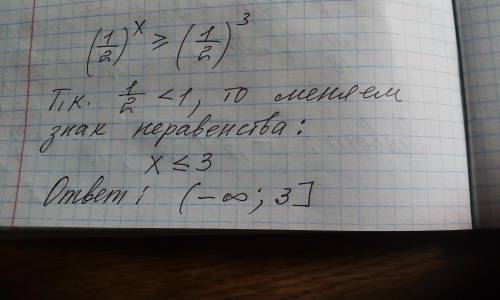 (1/2)^x ≥ (1/2)^3
Т.к. 1/2 < 1, то меняем
знак неравенства:
x ≤ 3
Ответ: (-∞; 3]